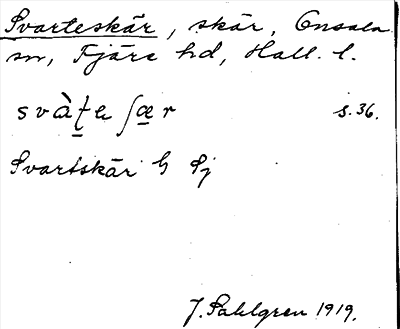 Svarteskär, skär, Onsala
sn, Fjäre hd, Hall. l.
svàṯe ʃæ̱r s. 36.
Svartskär G Sj
J. Sahlgren 1919.